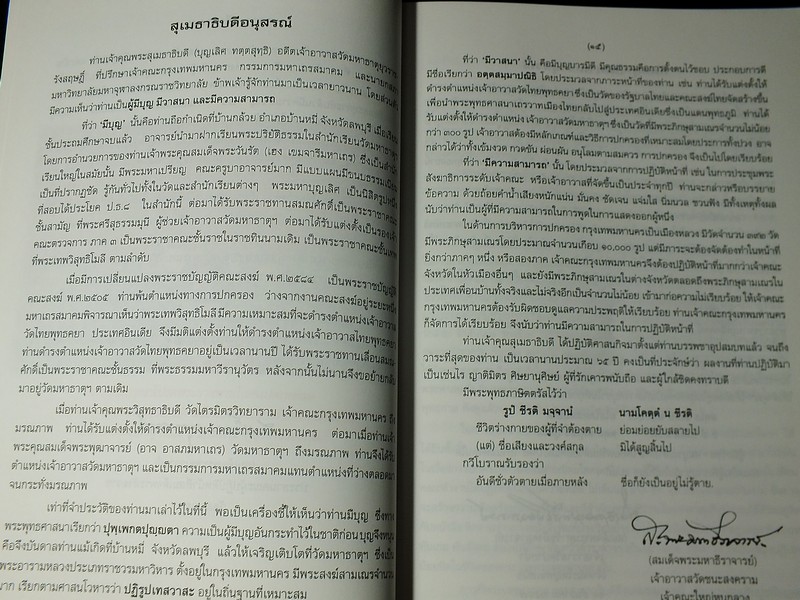 สุเมธาธิบดีอนุสรณ์
ท่านเจ้าคุณพระสุเมธาธิบดี (บุญเลิศ ทตฺตสุทฺธิ) อดีตเจ้าอาวาสวัดมหาธาตุยุวราช
รังสฤษฎิ์ ที่ปรึกษาเจ้าคณะกรุงเทพมหานคร กรรมการมหาเถรสมาคม และนายกสภา
มหาวิทยาลัยมหาจุฬาลงกรณราชวิทยาลัย ข้าพเจ้ารู้จักท่านมาเป็นเวลายาวนาน โดยส่วนตัว
มีความเห็นว่าท่านเป็นผู้มีบุญ มีวาสนา และมีความสามารถ
ที่ว่า 'มีบุญ' นั้นคือท่านถือกำเนิดที่บ้านกล้วย อำเภอบ้านหมี่ จังหวัดลพบุรี เมื่อเรียน
ชั้นประถมศึกษาจบแล้ว อาจารย์นำมาฝากเรียนพระปริยัติธรรมในสำนักเรียนวัดมหาธาตุฯ
โดยการอำนวยการของท่านเจ้าพระคุณสมเด็จพระวันรัต (เฮง เขมจารีมหาเถร) ซึ่งเป็นสำนัก
เรียนใหญ่ในสมัยนั้น มีพระมหาเปรียญ คณะครูบาอาจารย์มาก มีแบบแผนมีขนบธรรมเนียม
เป็นที่ปรากฏชัด รู้กันทั่วไปทั้งในวัดและสำนักเรียนต่างๆ พระมหาบุญเลิศ เป็นนิสิตรูปหนึ่ง
ที่สอบได้ประโยค ป.ธ.๘ ในสำนักนี้ ต่อมาได้รับพระราชทานสมณศักดิ์เป็นพระราชาคณะ
ชั้นสามัญ ที่พระศรีสุธรรมมุนี ผู้ช่วยเจ้าอาวาสวัดมหาธาตุฯ ต่อมาได้รับแต่งตั้งเป็นรองเจ้า
คณะตรวจการ ภาค ๓ เป็นพระราชาคณะชั้นราชในราชทินนามเดิม เป็นพระราชาคณะชั้นเทพ
ที่พระเทพวิสุทธิโมลี ตามลำดับ
เมื่อมีการเปลี่ยนแปลงพระราชบัญญัติคณะสงฆ์ พ.ศ.๒๔๘๔ เป็นพระราชบัญญัติ
คณะสงฆ์ พ.ศ.๒๕๐๕ ท่านพ้นตำแหน่งทางการปกครอง ว่างจากงานคณะสงฆ์อยู่ระยะหนึ่ง
มหาเถรสมาคมพิจารณาเห็นว่าพระเทพวิสุทธิโมลี มีความเหมาะสมที่จะดำรงตำแหน่งเจ้าอาวาส
วัดไทยพุทธคยา ประเทศอินเดีย จึงมีมติแต่งตั้งท่านให้ดำรงตำแหน่งเจ้าอาวาสวัดไทยพุทธคยา
ท่านดำรงตำแหน่งเจ้าอาวาสวัดไทยพุทธคยาอยู่เป็นเวลานานปี ได้รับพระราชทานเลื่อนสมณ
ศักดิ์เป็นพระราชาคณะชั้นธรรม ที่พระธรรมมหาวีรานุวัตร หลังจากนั้นไม่นานจึงขอย้ายกลับ
มาอยู่วัดมหาธาตุฯ ตามเดิม
เมื่อท่านเจ้าคุณพระวิสุทธาธิบดี วัดไตรมิตรวิทยาราม เจ้าคณะกรุงเทพมหานคร ถึง
มรณภาพ ท่านได้รับแต่งตั้งให้ดำรงตำแหน่งเจ้าคณะกรุงเทพมหานคร ต่อมาเมื่อท่านเจ้า
พระคุณสมเด็จพระพุฒาจารย์ (อาจ อาสภมหาเถร) วัดมหาธาตุฯ ถึงมรณภาพ ท่านจึงได้รับ
ตำแหน่งเจ้าอาวาสวัดมหาธาตุฯ และเป็นกรรมการมหาเถรสมาคมแทนตำแหน่งที่ว่างตลอดมา
จนกระทั่งมรณภาพ
เท่าที่จำประวัติของท่านมาเล่าไว้ในที่นี้ พอเป็นเครื่องชี้ให้เห็นว่าท่านมีบุญ ซึ่งทาง
พระพุทธศาสนาเรียกว่า ปุพฺเพกตปุญฺญตา ความเป็นผู้มีบุญอันกระทำไว้ในชาติก่อน บุญจึงหนุน
คือจึงบันดาลท่านแม้เกิดที่บ้านหมี่ จังหวัดลพบุรี แล้วให้เจริญเติบโตที่วัดมหาธาตุฯ ซึ่งเป็น
พระอารามหลวงประเภทราชวรมหาวิหาร ตั้งอยู่ในกรุงเทพมหานคร มีพระสงฆ์สามเณรจำนวน
มาก เรียกตามศาสนโวหารว่า ปฏิรูปเทสวาสะ อยู่ในถิ่นฐานที่เหมาะสม
(๑๕)
ที่ว่า 'มีวาสนา' นั้น คือมีบุญบารมีดี มีคุณธรรมคือการตั้งตนไว้ชอบ ประกอบการดี
มีชื่อเรียกว่า อตฺตสมฺมาปณิธิ โดยประมวลจากภาระหน้าที่ของท่าน เช่น ท่านได้รับแต่งตั้งให้
ดำรงตำแหน่งเจ้าอาวาสวัดไทยพุทธคยา ซึ่งเป็นวัดของรัฐบาลไทยและคณะสงฆ์ไทยจัดสร้างขึ้น
เพื่อนำพระพุทธศาสนาเถรวาทเมืองไทยกลับไปสู่ประเทศอินเดียซึ่งเป็นแดนพุทธภูมิ ท่านได้
รับแต่งตั้งให้ดำรงตำแหน่ง เจ้าอาวาสวัดมหาธาตุฯ ซึ่งเป็นวัดที่มีพระภิกษุสามเณรจำนวนไม่น้อย
กว่า ๓๐๐ รูป เจ้าอาวาสต้องมีหลักเกณฑ์และวิธีการปกครองที่เหมาะสมโดยประการทั้งปวง อาจ
กล่าวได้ว่าทั้งเข้มงวด กวดขัน ผ่อนผัน อนุโลมตามสมควร การปกครอง จึงเป็นไปโดยเรียบร้อย
ที่ว่า 'มีความสามารถ' นั้น โดยประมวลจากการปฏิบัติหน้าที่ เช่น ในการประชุมพระ
สังฆาธิการระดับเจ้าคณะ หรือเจ้าอาวาสที่จัดขึ้นเป็นประจำทุกปี ท่านจะกล่าวหรือบรรยาย
ข้อความ ด้วยถ้อยคำน้ำเสียงหนักแน่น มั่นคง ชัดเจน แจ่มใส นิ่มนวล ชวนฟัง มีทั้งเหตุทั้งผล
นับว่าท่านเป็นผู้ที่มีความสามารถในการพูดในการแสดงออกผู้หนึ่ง
ในด้านการบริหารการปกครอง กรุงเทพมหานครเป็นเมืองหลวง มีวัดจำนวน ๓๙๒ วัด
มีพระภิกษุสามเณรโดยประมาณจำนวนเกือบ ๑๐,๐๐๐ รูป แต่มีภาระจะต้องจัดต้องทำในหน้าที่
ยิ่งกว่าภาคๆ หนึ่ง หรือสองภาค เจ้าคณะกรุงเทพมหานครจึงต้องปฏิบัติหน้าที่มากกว่าเจ้าคณะ
จังหวัดในหัวเมืองอื่นๆ และยังมีพระภิกษุสามเณรในต่างจังหวัดตลอดถึงพระภิกษุสามเณรใน
ประเทศเพื่อนบ้านทั้งจริงและไม่จริงอีกเป็นจำนวนไม่น้อย เข้ามาก่อความไม่เรียบร้อย ให้เจ้าคณะ
กรุงเทพมหานครต้องรับผิดชอบดูแลความประพฤติให้เรียบร้อย ท่านเจ้าคณะกรุงเทพมหานคร
ก็จัดการได้เรียบร้อย จึงนับว่าท่านมีความสามารถในการปฏิบัติหน้าที่
ท่านเจ้าคุณสุเมธาธิบดี ได้ปฏิบัติศาสนกิจมาตั้งแต่ท่านบรรพชาอุปสมบทแล้ว จนถึง
วาระที่สุดของท่าน เป็นเวลานานประมาณ ๖๕ ปี คงเป็นที่ประจักษ์ว่า ผลงานที่ท่านปฏิบัติมา
เป็นเช่นไร ญาติมิตร ศิษยานุศิษย์ ผู้ที่รักเคารพนับถือ และผู้ใกล้ชิดคงทราบดี
มีพระพุทธภาษิตตรัสไว้ว่า
รูปํ ชีรติ มจฺจานํ นามโคตฺตํ น ชีรติ
ชีวิตร่างกายของผู้ที่จำต้องตาย ย่อมย่อยยับสลายไป
(แต่) ชื่อเสียงและวงศ์สกุล มิได้สูญสิ้นไป
กวีโบราณรับรองว่า
อันดีชั่วตัวตายเมื่อภายหลัง ชื่อก็ยังเป็นอยู่ไม่รู้ตาย.
(สมเด็จพระมหาธีราจารย์)
เจ้าอาวาสวัดชนะสงคราม
เจ้าคณะใหญ่หนกลาง